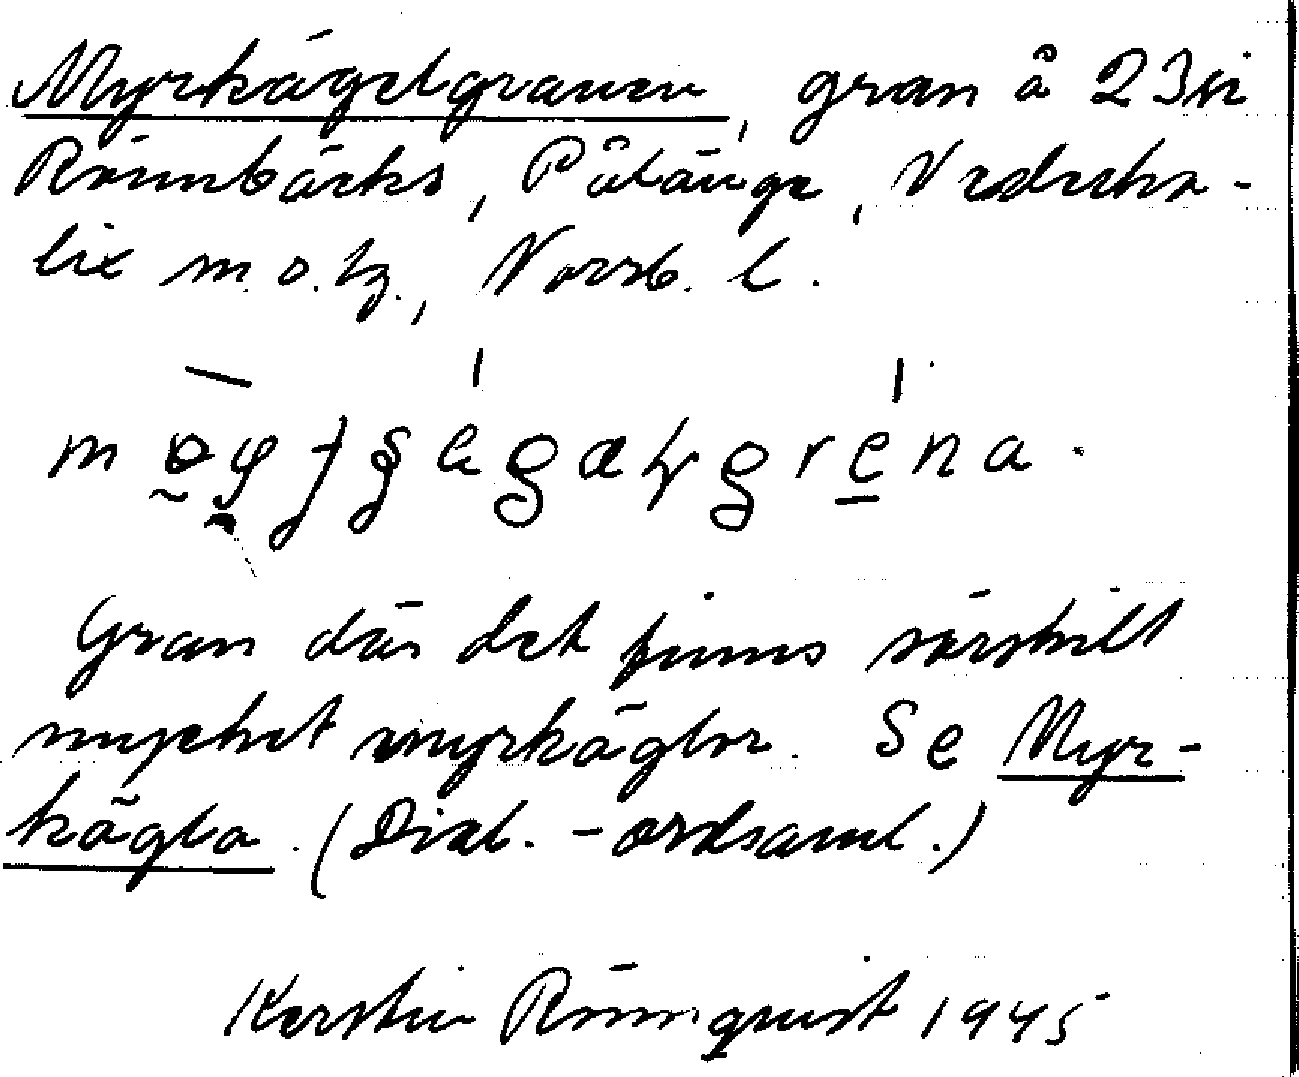 Myrkägelgranen, gran å 23 si
Rönnbäcks, Pålänge, Nederka-
lix m. o. tg., Norrb. l.
Gran där det finns särskilt
mycket myrkäglor. Se Myr-
kägla. (Dial.-ordsaml.)
Kerstin Rönnquist 1945